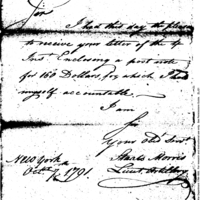 Sir
I had this day the pleasure
to receive your letter of the 4
Inst Enclosing a post note
for 160 Dollars, for which I am
myself accountable.
I am
Sir
Your Obd Servt
Staats Morris
New York
Octr 1791.